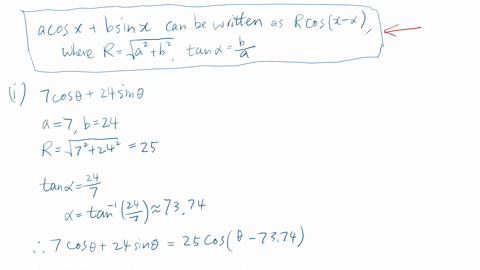 acosx + bsinx can be written as Rcos(x-α),
where R = √(a²+b²), tanα = b/a
(i) 7cosθ + 24sinθ
a=7, b=24
R = √(7²+24²) = 25
tanα = 24/7
α = tan⁻¹(24/7) ≈ 73.74
∴ 7cosθ + 24sinθ = 25cos(θ - 73.74)